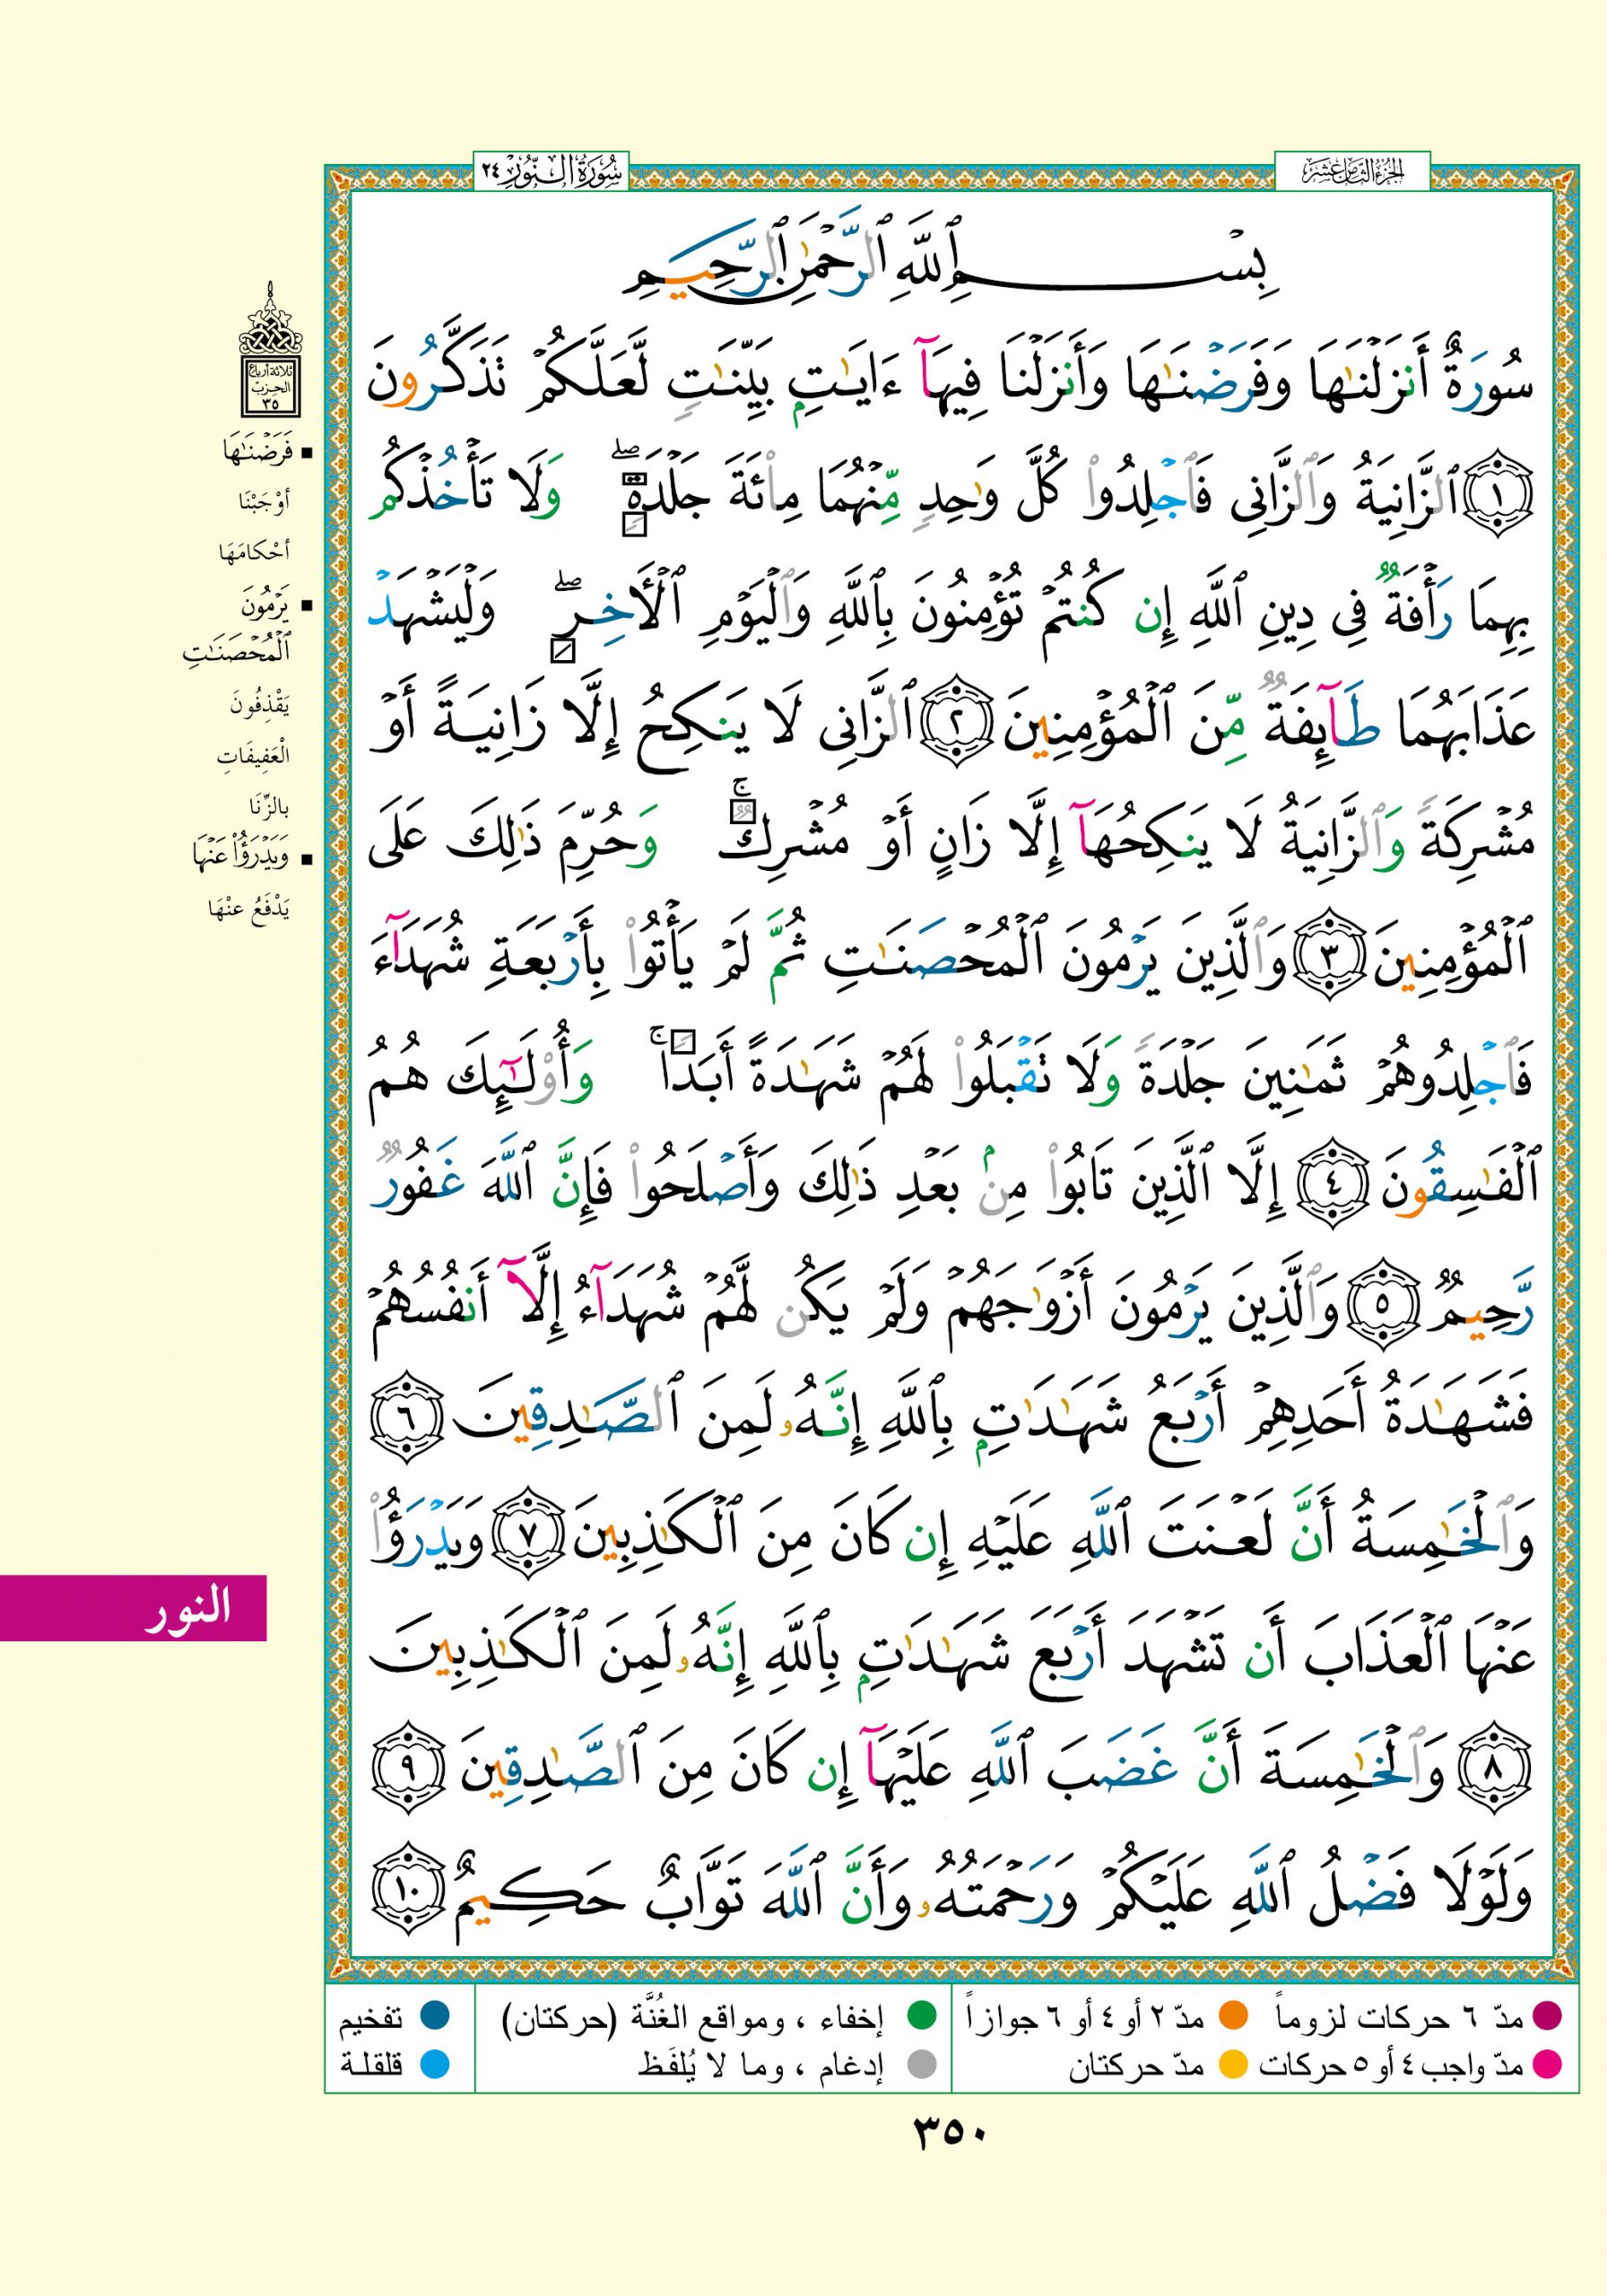 الجزء الثامن عشر
سورة النور ٢٤
بِسْمِ ٱللَّهِ ٱلرَّحْمَٰنِ ٱلرَّحِيمِ
سُورَةٌ أَنزَلْنَٰهَا وَفَرَضْنَٰهَا وَأَنزَلْنَا فِيهَآ ءَايَٰتٍۭ بَيِّنَٰتٍ لَّعَلَّكُمْ تَذَكَّرُونَ
١ ٱلزَّانِيَةُ وَٱلزَّانِى فَٱجْلِدُوا۟ كُلَّ وَٰحِدٍ مِّنْهُمَا مِا۟ئَةَ جَلْدَةٍ ۖ وَلَا تَأْخُذْكُم
بِهِمَا رَأْفَةٌ فِى دِينِ ٱللَّهِ إِن كُنتُمْ تُؤْمِنُونَ بِٱللَّهِ وَٱلْيَوْمِ ٱلْأَخِرِ ۖ وَلْيَشْهَدْ
عَذَابَهُمَا طَآئِفَةٌ مِّنَ ٱلْمُؤْمِنِينَ ٢ ٱلزَّانِى لَا يَنكِحُ إِلَّا زَانِيَةً أَوْ
مُشْرِكَةً وَٱلزَّانِيَةُ لَا يَنكِحُهَآ إِلَّا زَانٍ أَوْ مُشْرِكٌ ۚ وَحُرِّمَ ذَٰلِكَ عَلَى
ٱلْمُؤْمِنِينَ ٣ وَٱلَّذِينَ يَرْمُونَ ٱلْمُحْصَنَٰتِ ثُمَّ لَمْ يَأْتُوا۟ بِأَرْبَعَةِ شُهَدَآءَ
فَٱجْلِدُوهُمْ ثَمَٰنِينَ جَلْدَةً وَلَا تَقْبَلُوا۟ لَهُمْ شَهَٰدَةً أَبَدًا ۚ وَأُو۟لَٰٓئِكَ هُمُ
ٱلْفَٰسِقُونَ ٤ إِلَّا ٱلَّذِينَ تَابُوا۟ مِنۢ بَعْدِ ذَٰلِكَ وَأَصْلَحُوا۟ فَإِنَّ ٱللَّهَ غَفُورٌ
رَّحِيمٌ ٥ وَٱلَّذِينَ يَرْمُونَ أَزْوَٰجَهُمْ وَلَمْ يَكُن لَّهُمْ شُهَدَآءُ إِلَّآ أَنفُسُهُمْ
فَشَهَٰدَةُ أَحَدِهِمْ أَرْبَعُ شَهَٰدَٰتٍۭ بِٱللَّهِ إِنَّهُۥ لَمِنَ ٱلصَّٰدِقِينَ ٦
وَٱلْخَٰمِسَةُ أَنَّ لَعْنَتَ ٱللَّهِ عَلَيْهِ إِن كَانَ مِنَ ٱلْكَٰذِبِينَ ٧ وَيَدْرَؤُا۟
عَنْهَا ٱلْعَذَابَ أَن تَشْهَدَ أَرْبَعَ شَهَٰدَٰتٍۭ بِٱللَّهِ إِنَّهُۥ لَمِنَ ٱلْكَٰذِبِينَ
٨ وَٱلْخَٰمِسَةَ أَنَّ غَضَبَ ٱللَّهِ عَلَيْهَآ إِن كَانَ مِنَ ٱلصَّٰدِقِينَ ٩
وَلَوْلَا فَضْلُ ٱللَّهِ عَلَيْكُمْ وَرَحْمَتُهُۥ وَأَنَّ ٱللَّهَ تَوَّابٌ حَكِيمٌ ١٠
ثلاثة أرباع
الحزب
٣٥
فَرَضْنَٰهَا
أوْجَبْنَا
أحْكامَهَا
يَرْمُونَ
ٱلْمُحْصَنَٰتِ
يَقْذِفُونَ
الْعَفِيفَاتِ
بالزِّنَا
وَيَدْرَؤُا۟ عَنْهَا
يَدْفَعُ عنْهَا
النور
مدّ ٦ حركات لزوماً مدّ ٢ أو ٤ أو ٦ جوازاً إخفاء ، ومواقع الغُنَّة (حركتان) تفخيم
مدّ واجب ٤ أو ٥ حركات مدّ حركتان إدغام ، وما لا يُلفَظ قلقلة
٣٥٠